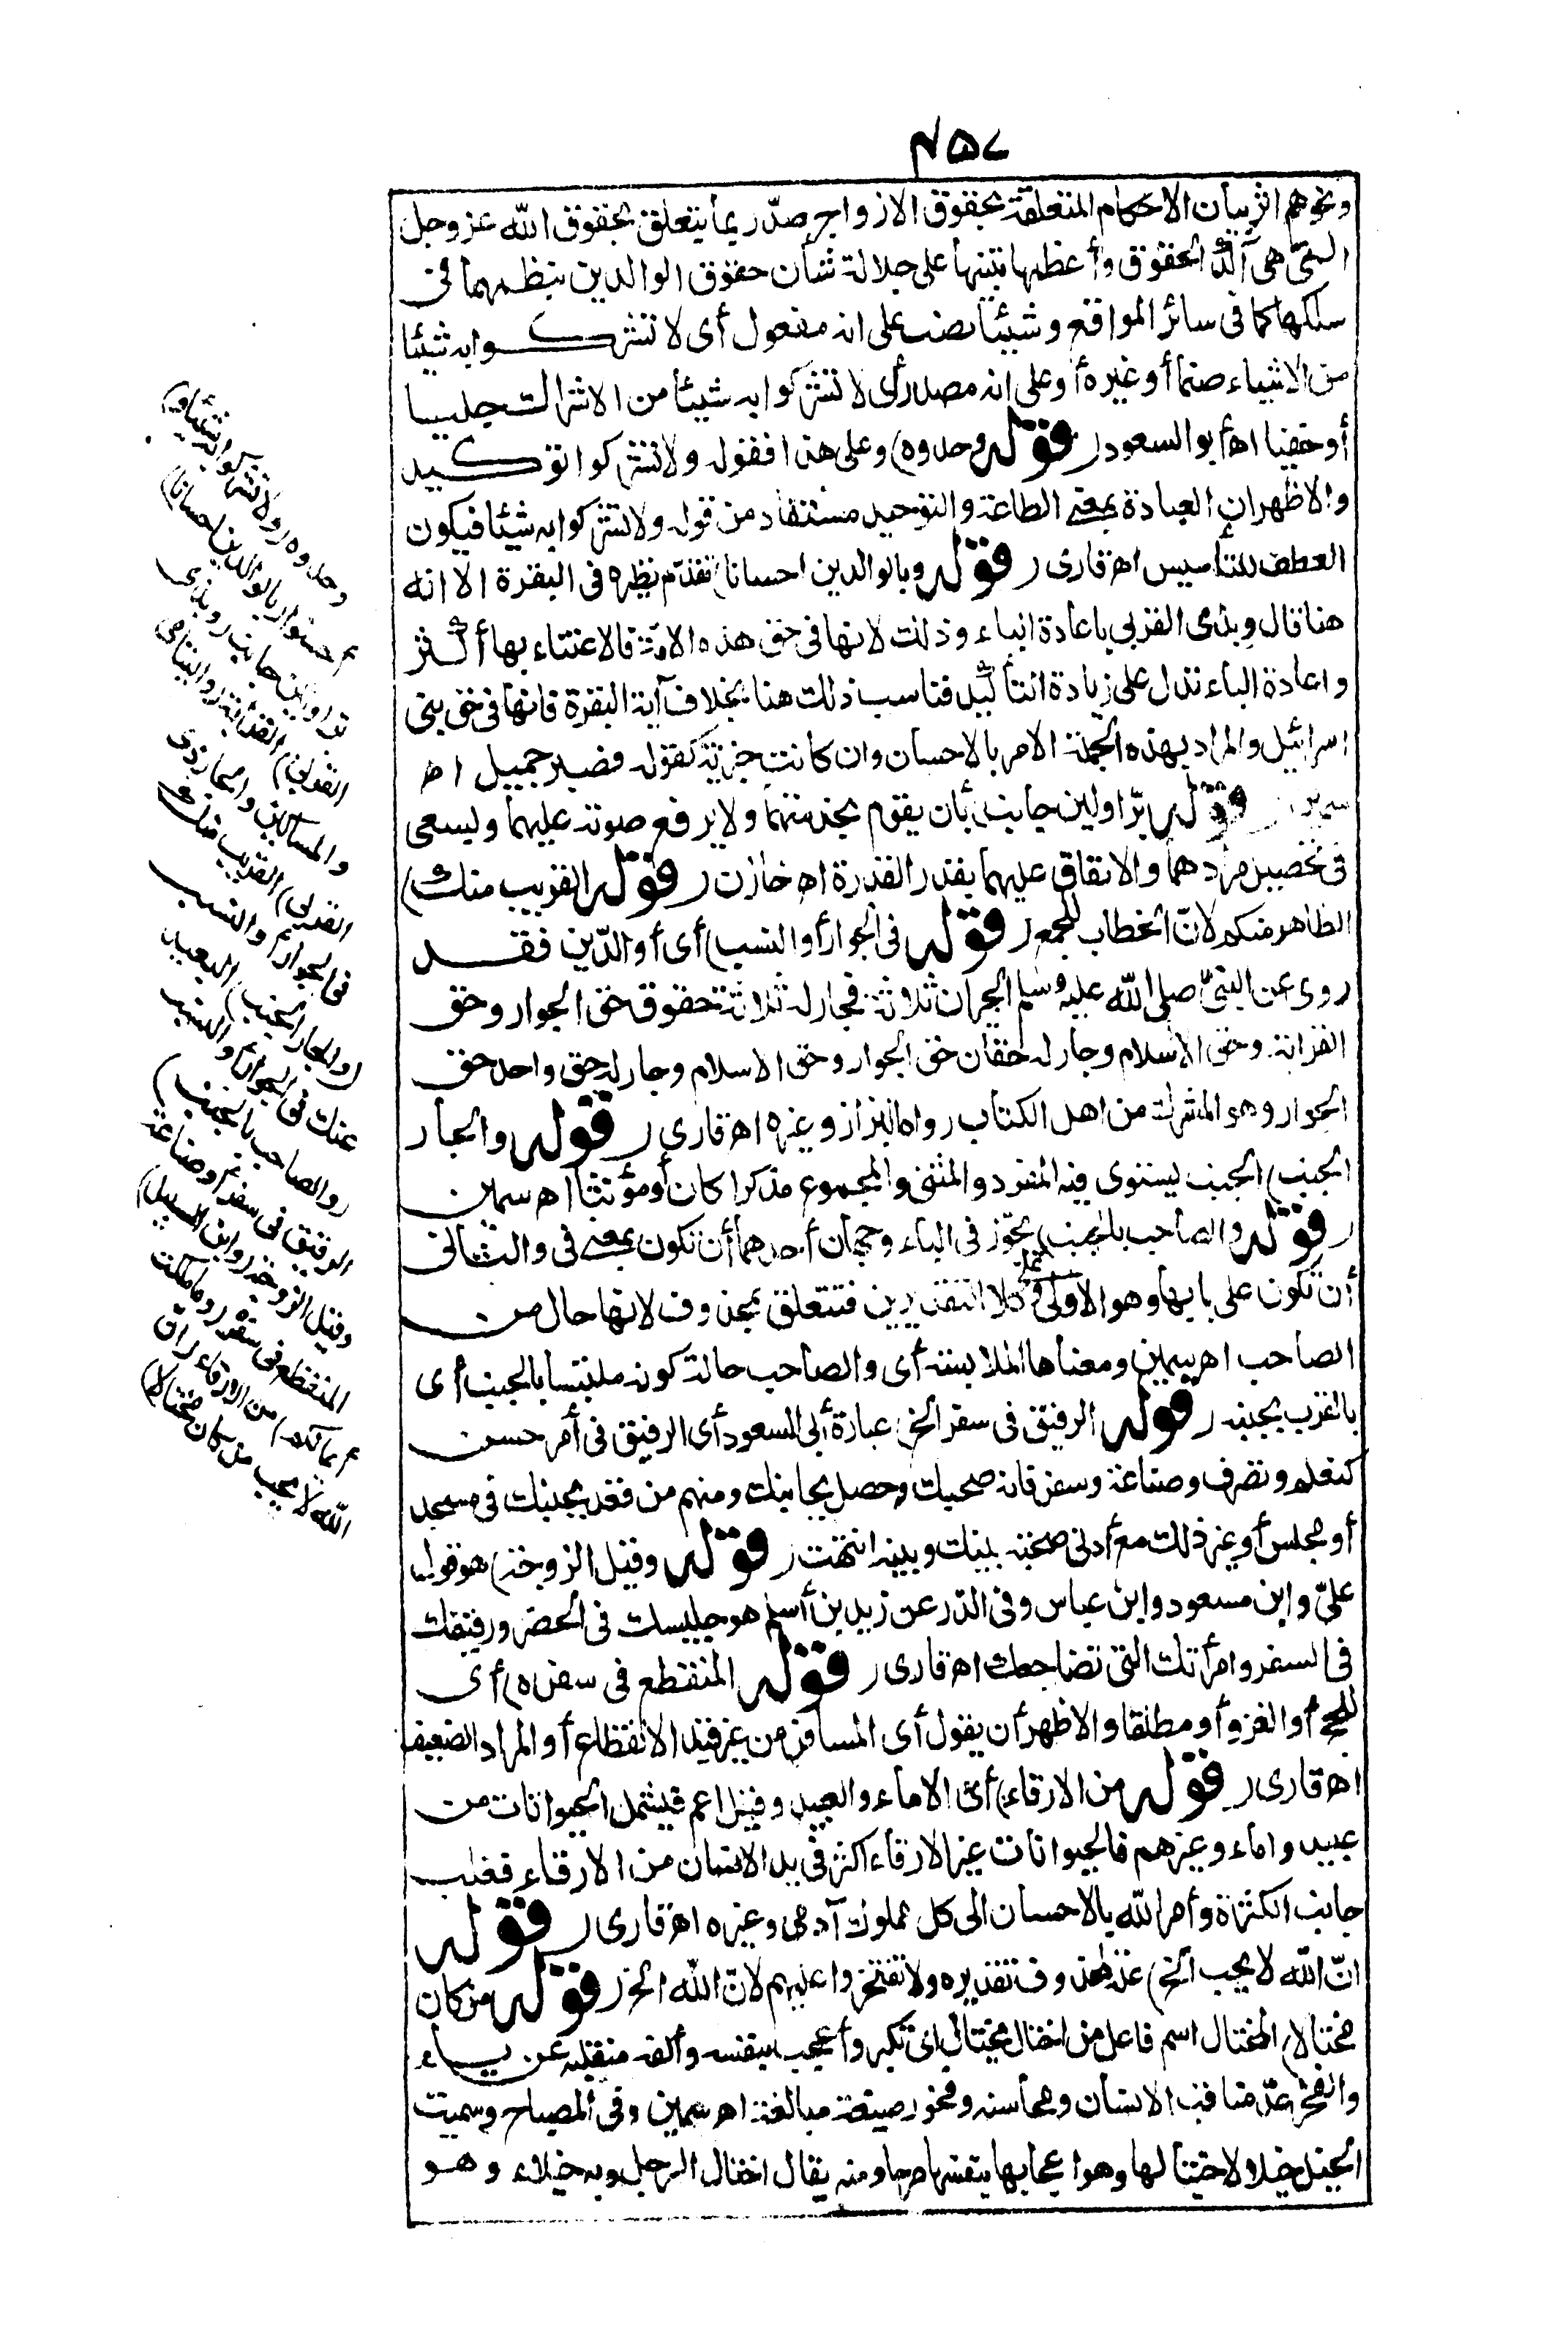 ٤٥٧
ونحوهم اثر بيان الاحكام المتعلقة بحقوق الازواج صدّر بما يتعلق بحقوق الله عز وجل
التي هي آكد الحقوق وأعظمها تنبيها على جلالة شأن حقوق الوالدين بنظمهما فى
سلكها كما فى سائر المواقع وشيئا نصب على انه مفعول أى لا تشركوا به شيئا
من الاشياء صنما أو غيره أو على انه مصدر أى لا تشركوا به شيئا من الاشراك جليا
أو خفيا اه أبو السعود (قوله وحدوه) وعلى هذا فقوله ولا تشركوا توكيد
والاظهر ان العبادة بمعنى الطاعة والتوحيد مستفاد من قوله ولا تشركوا به شيئا فيكون
العطف للتأسيس اه قارى (قوله وبالوالدين احسانا) تقدّم نظيره فى البقرة الا انه
هنا قال وبذى القربى باعادة الباء وذلك لانها فى حق هذه الامّة فالاعتناء بها أكثر
واعادة الباء تدل على زيادة التأكيد فناسب ذلك هنا بخلاف آية البقرة فانها فى حق بنى
اسرائيل والمراد بهذه الجملة الامر بالاحسان وان كانت خبرية كقوله فصبر جميل اه
سمين (قوله برّا ولين جانب) بأن يقوم بخدمتهما ولا يرفع صوته عليهما ويسعى
فى تحصيل مرادهما والانفاق عليهما بقدر القدرة اه خازن (قوله القريب منك)
الظاهر منكم لانّ الخطاب للجمع (قوله فى الجوار أو النسب) أى أو الدّين فقد
روى عن النبيّ صلى الله عليه وسلم الجيران ثلاثة فجار له ثلاثة حقوق حق الجوار وحق
القرابة وحق الاسلام وجار له حقان حق الجوار وحق الاسلام وجار له حق واحد حق
الجوار وهو المشرك من اهل الكتاب رواه البزاز وغيره اه قارى (قوله والجار
الجنب) الجنب يستوى فيه المفرد والمثنى والمجموع مذكرا كان أو مؤنثا اه سمين
(قوله والصاحب بالجنب) يجوّز فى الباء وجهان أحدهما أن تكون بمعنى فى والثانى
أن تكون على بابها وهو الاولى وعلى كلا التقديرين فتتعلق بمحذوف لانها حال من
الصاحب اه سمين ومعناها الملابسة أى والصاحب حالة كونه ملتبسا بالجنب أى
بالقرب بجنبه (قوله الرفيق فى سفر الخ) عبارة أبى السعود أى الرفيق فى أمر حسن
كتعلم وتصرف وصناعة وسفر فانه صحبك وحصل بجانبك ومنهم من قعد بجنبك فى مسجد
أو مجلس أو غير ذلك مع أدنى صحبة بينك وبينه انتهت (قوله وقيل الزوجة) هو قول
علىّ وابن مسعود وابن عباس وفى الدّر عن زيد بن أسلم هو جليسك فى الحضر ورفيقك
فى السفر وامرأتك التى تضاجعك اه قارى (قوله المنقطع فى سفره) أى
للحج أو الغزو أو مطلقا والاظهر أن يقول أى المسافر من غير قيد الانقطاع أو المراد الضعيف
اه قارى (قوله من الارقاء) أى الاماء والعبيد وقيل اعم فيشمل الحيوانات من
عبيد واماء وغيرهم فالحيوانات غير الارقاء أكثر فى يد الانسان من الارقاء فغلب
جانب الكثرة وأمر الله بالاحسان الى كل مملوك آدمى وغيره اه قارى (قوله
انّ الله لا يحب الخ) علة لمحذوف تقديره ولا تفتخروا عليهم لانّ الله الخ (قوله من كان
مختالا) المختال اسم فاعل من اختال يختال أى تكبر وأعجب بنفسه وألفه منقلبة عن ياء
والفخر عدّ مناقب الانسان ومحاسنه وفخور صيغة مبالغة اه سمين وفى المصباح وسميت
الخيل خيلا لاختيالها وهو اعجابها بنفسها مرحا ومنه يقال اختال الرجل وبه خيلاء وهو
وحدوه (ولا تشركوا به شيئا و)
أحسنوا (بالوالدين احسانا)
برا ولين جانب (وبذى
القربى) القرابة (واليتامى
والمساكين والجار ذى
القربى) القريب منك
فى الجوار أو النسب
(والجار الجنب) البعيد
عنك فى الجوار أو النسب
(والصاحب بالجنب)
الرفيق فى سفر أو صناعة
وقيل الزوجة (وابن السبيل)
المنقطع فى سفره (وما ملكت
أيمانكم) من الارقاء (انّ
الله لا يحب من كان مختالا)